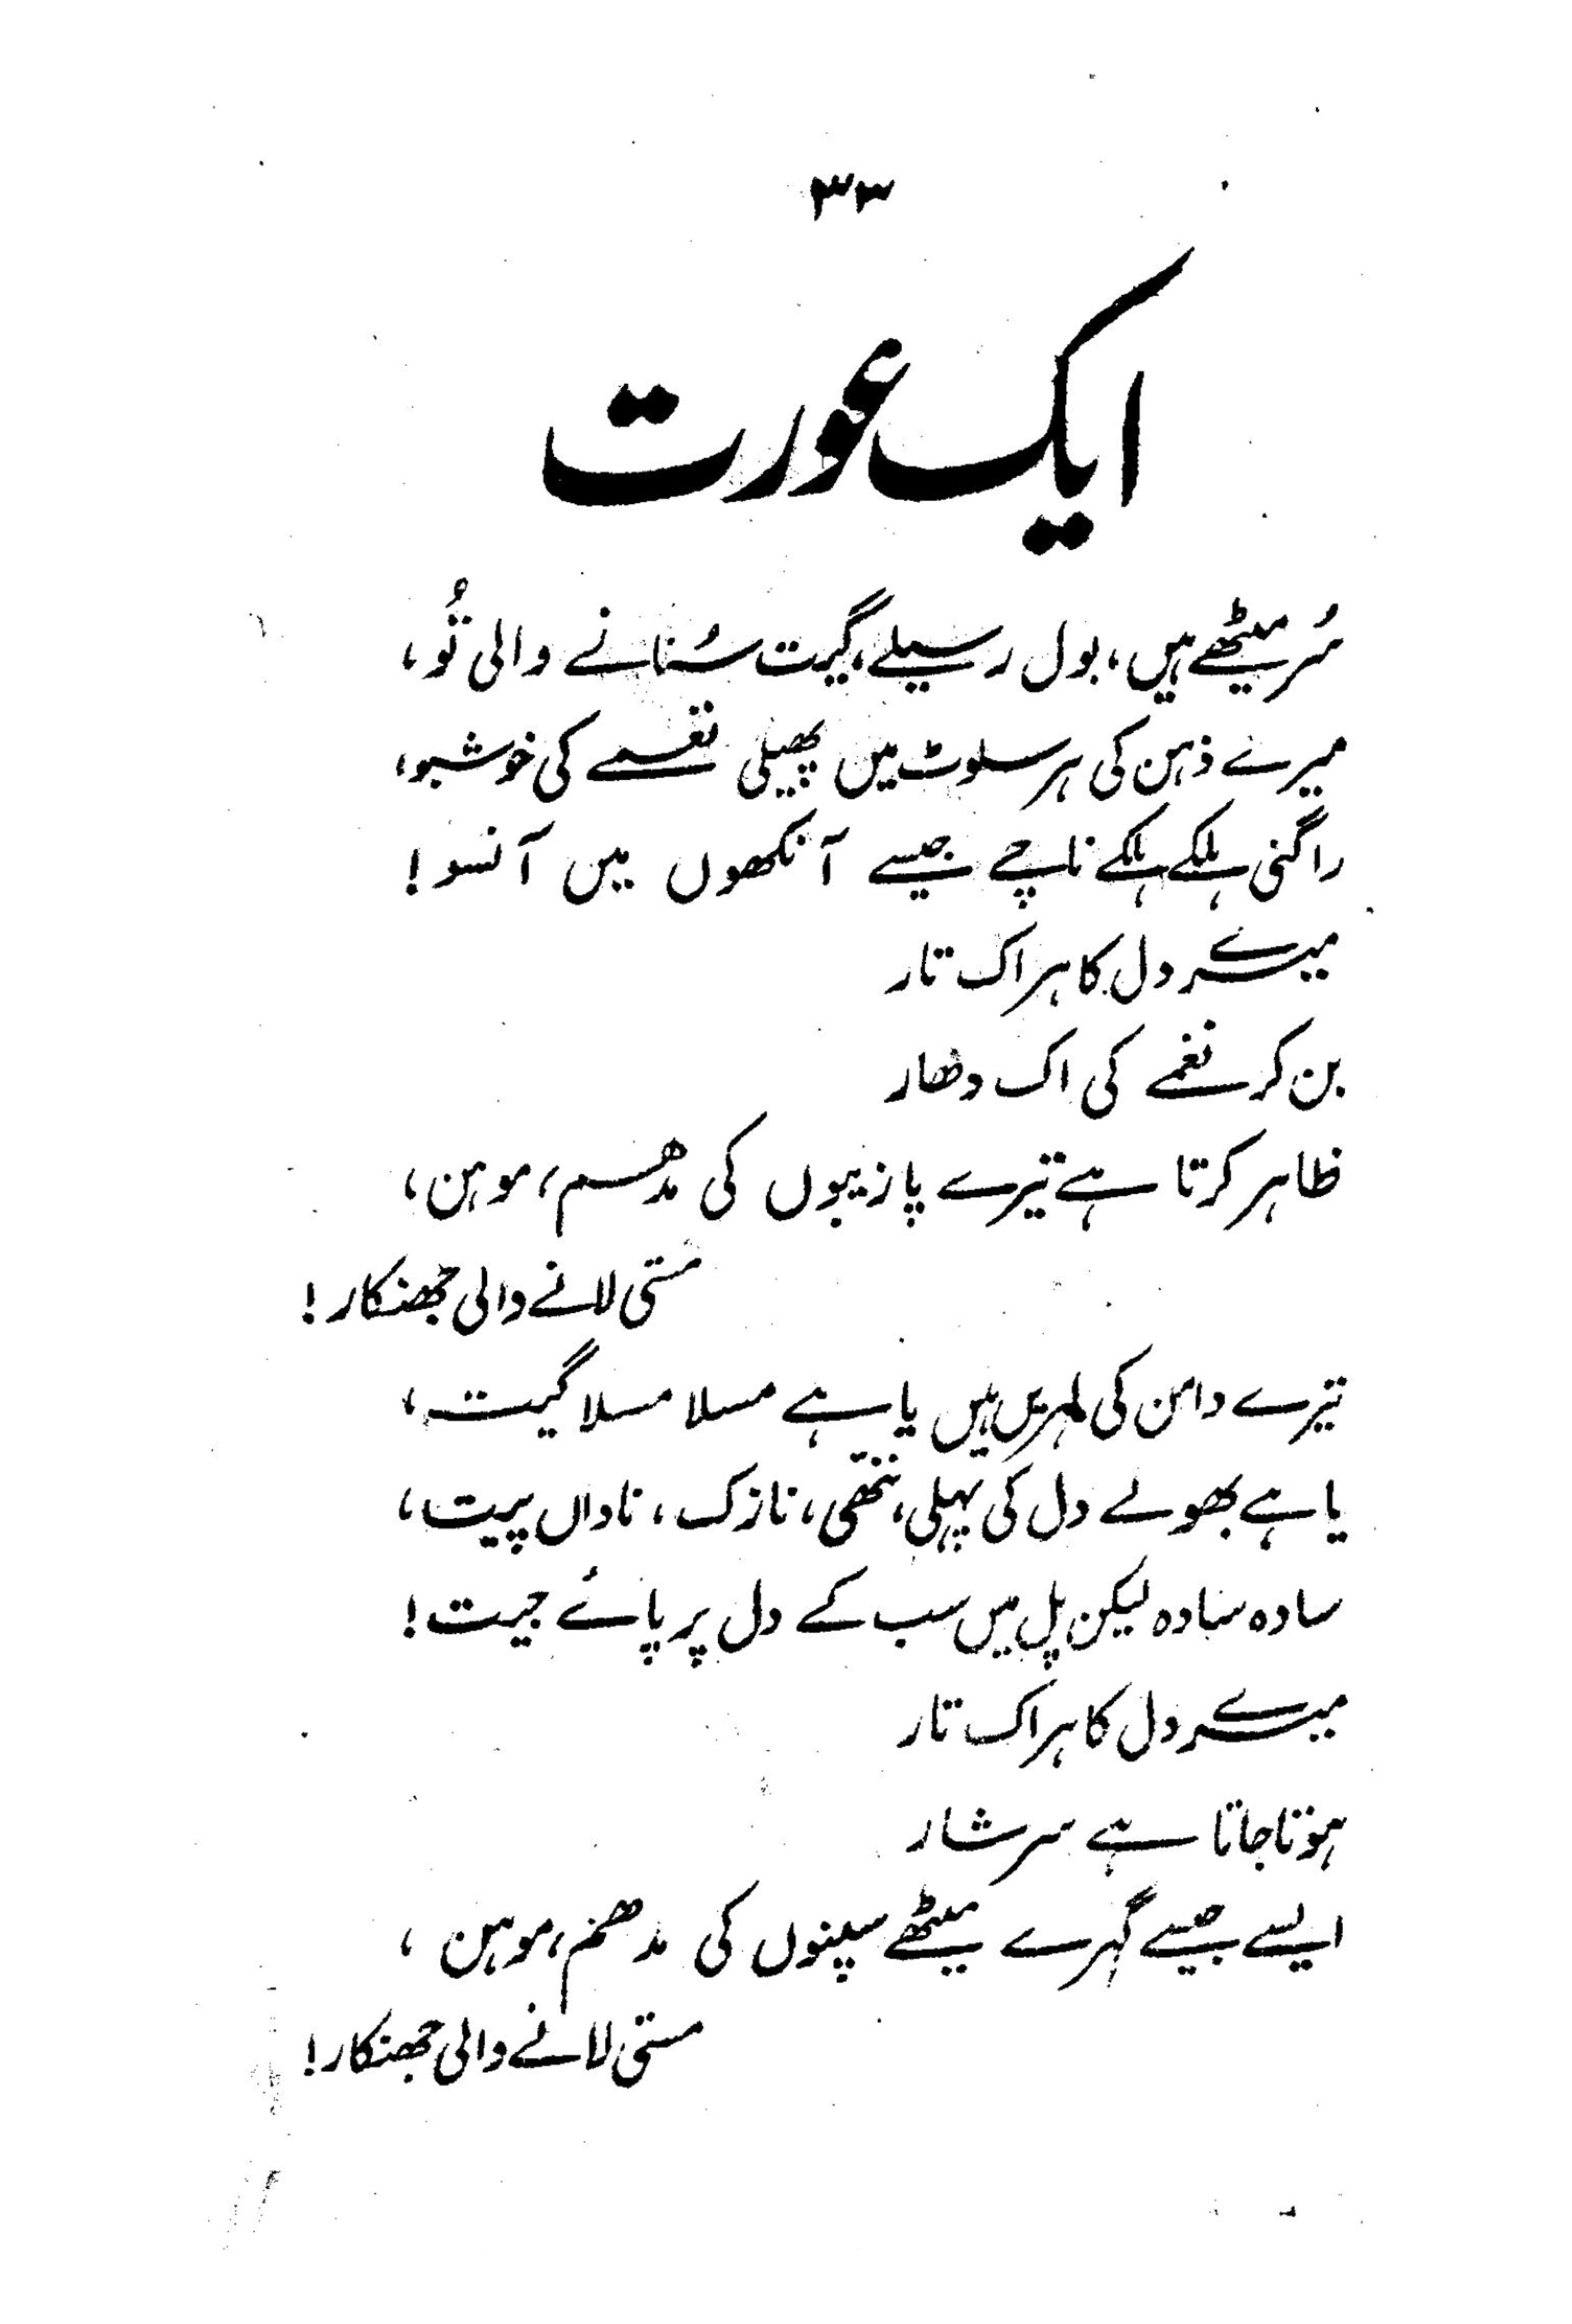 ۳۳
ایک عورت
سُر میٹھے ہیں، بول رسیلے، گیت سُنانے والی تُو،
میرے ذہن کی ہر سلوٹ میں پھیلی نغمے کی خوشبو،
راگنی ہلکے ہلکے ناچے جیسے آنکھوں میں آنسو!
میرے دل کا ہر اک تار
بن کر نغمے کی اک دھار
ظاہر کرتا ہے تیرے پازیبوں کی مدھم، موہن،
مستی لانے والی جھنکار!
تیرے دامن کی لہریں ہیں یا ہے مسلا مسلا گیت،
یا ہے بھولے دل کی پہلی، ننھی، نازک، ناداں پیت،
سادہ سادہ لیکن پل میں سب کے دل پر پائے جیت!
میرے دل کا ہر اک تار
ہوتا جاتا ہے سرشار
ایسے جیسے گہرے میٹھے سپنوں کی مدھم، موہن،
مستی لانے والی جھنکار!